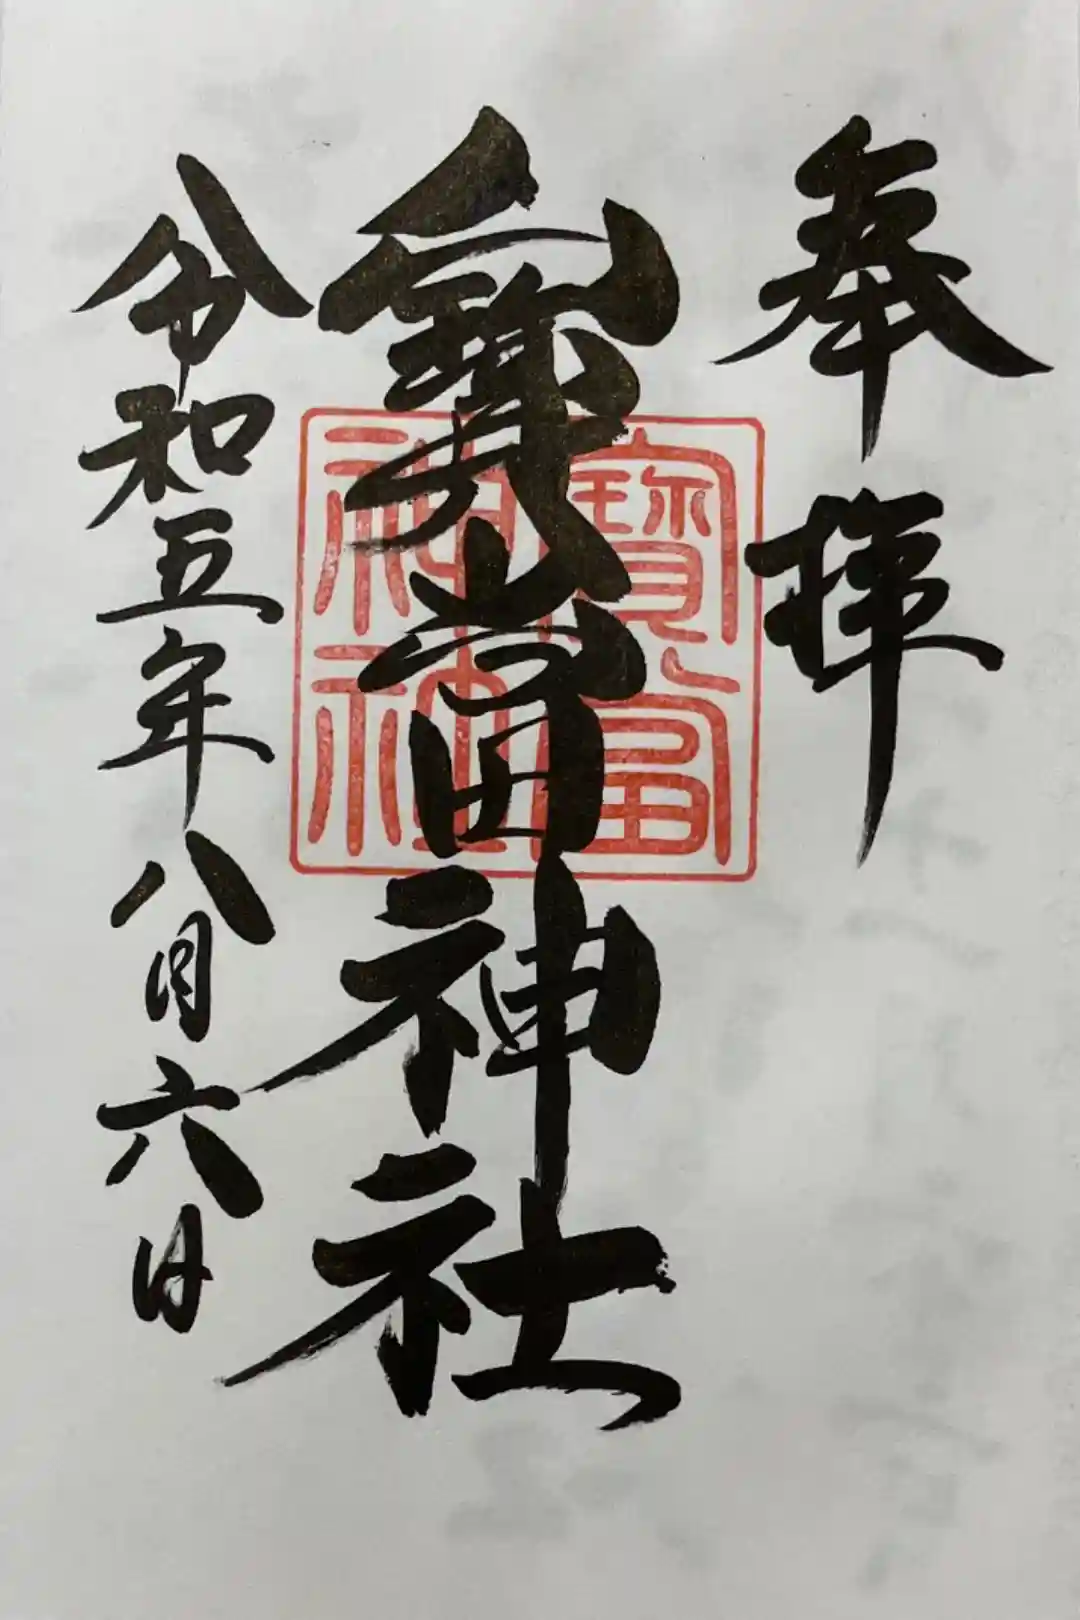 奉拝
寶當神社
寶當
神社
令和五年八月六日